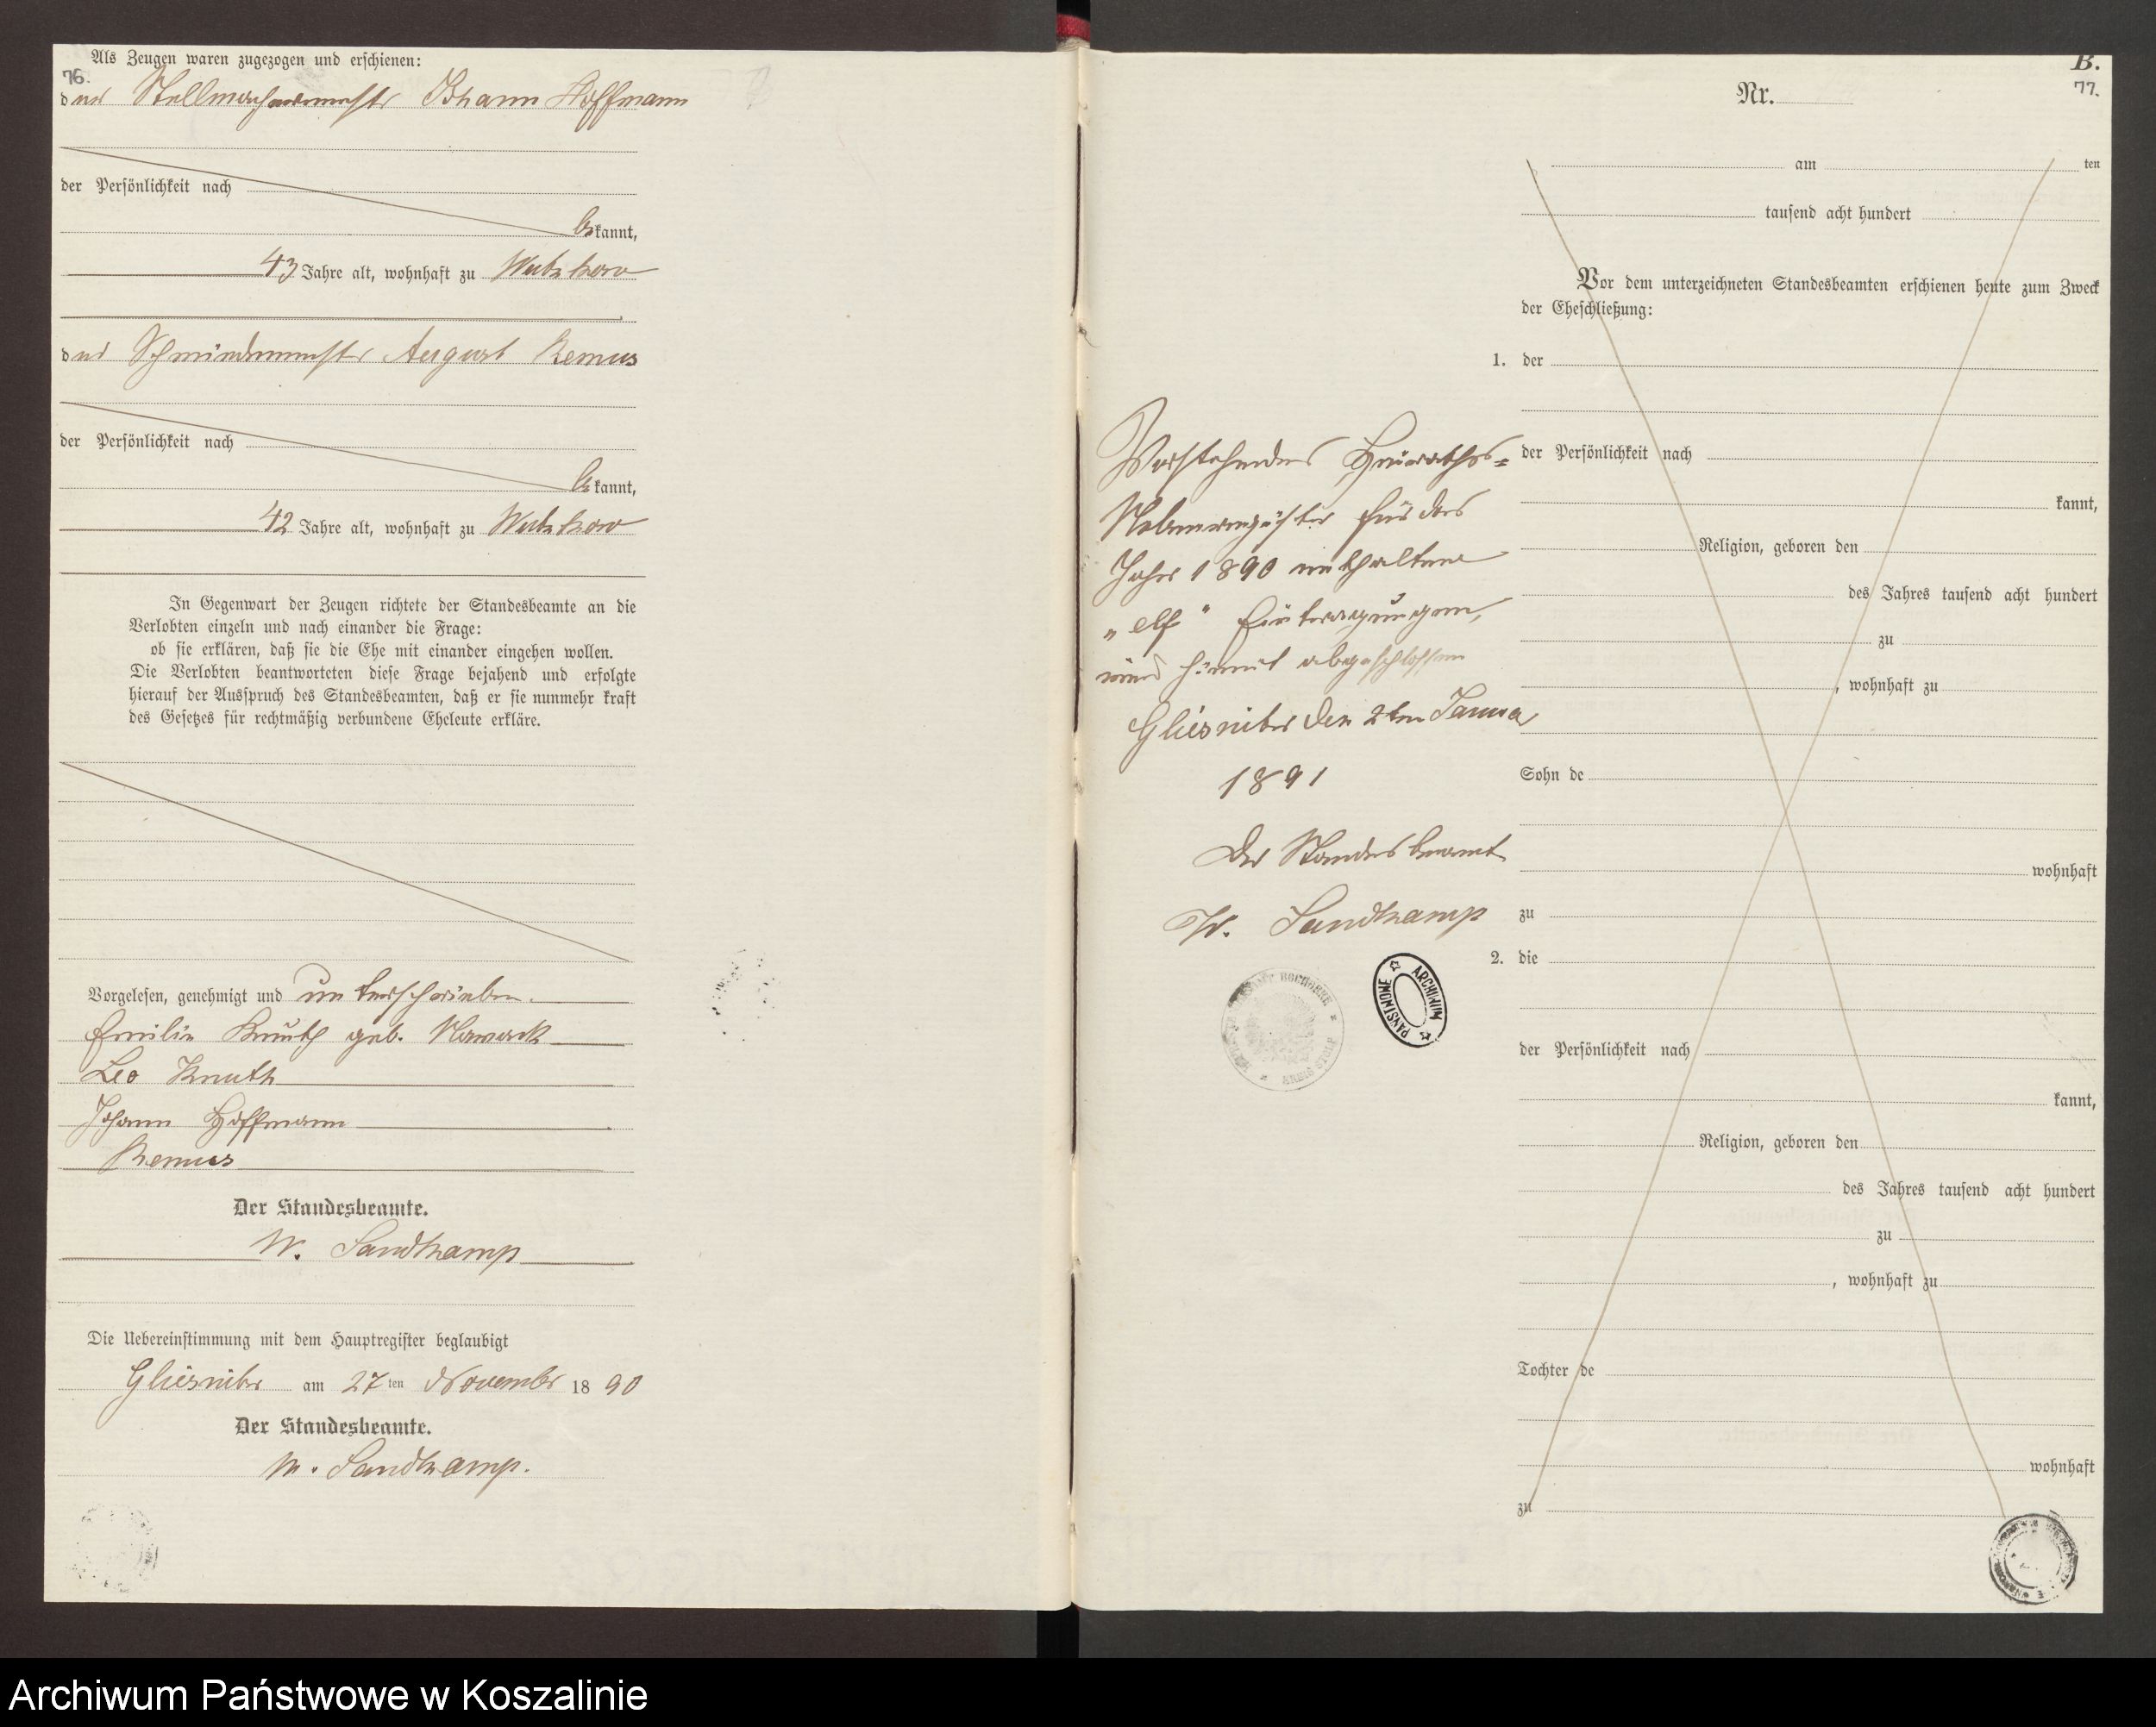 Als Zeugen waren zugezogen und erschienen:
76.
der Stellmachermeister Johann Hoffmann
der Persönlichkeit nach
bekannt,
43 Jahre alt, wohnhaft zu Wutzkow
der Schmiedemeister August Remus
der Persönlichkeit nach
bekannt,
42 Jahre alt, wohnhaft zu Wutzkow
In Gegenwart der Zeugen richtete der Standesbeamte an die
Verlobten einzeln und nach einander die Frage:
ob sie erklären, daß sie die Ehe mit einander eingehen wollen.
Die Verlobten beantworteten diese Frage bejahend und erfolgte
hierauf der Ausspruch des Standesbeamten, daß er sie nunmehr kraft
des Gesetzes für rechtmäßig verbundene Eheleute erkläre.
Vorgelesen, genehmigt und unterschrieben.
Emilie Knuth geb. Nowack
Leo Knuth
Johann Hoffmann
Remus
Der Standesbeamte.
W. Sandkamp
Die Uebereinstimmung mit dem Hauptregister beglaubigt
Gliesnitz am 27ten November 1890
Der Standesbeamte.
W. Sandkamp.
B.
77.
Nr.
am ten
tausend acht hundert
Vor dem unterzeichneten Standesbeamten erschienen heute zum Zweck
der Eheschließung:
1. der
der Persönlichkeit nach
kannt,
Religion, geboren den
des Jahres tausend acht hundert
zu
, wohnhaft zu
Sohn de
wohnhaft
zu
2. die
der Persönlichkeit nach
kannt,
Religion, geboren den
des Jahres tausend acht hundert
zu
, wohnhaft zu
Tochter de
wohnhaft
zu
Vorstehendes Heiraths-
Nebenregister für das
Jahr 1890 enthaltend
„elf“ Eintragungen,
wird hiermit abgeschlossen
Gliesnitz den 2ten Januar
1891
Der Standesbeamte
W. Sandkamp
ARCHIWUM PAŃSTWOWE
KREIS STOLP
Archiwum Państwowe w Koszalinie